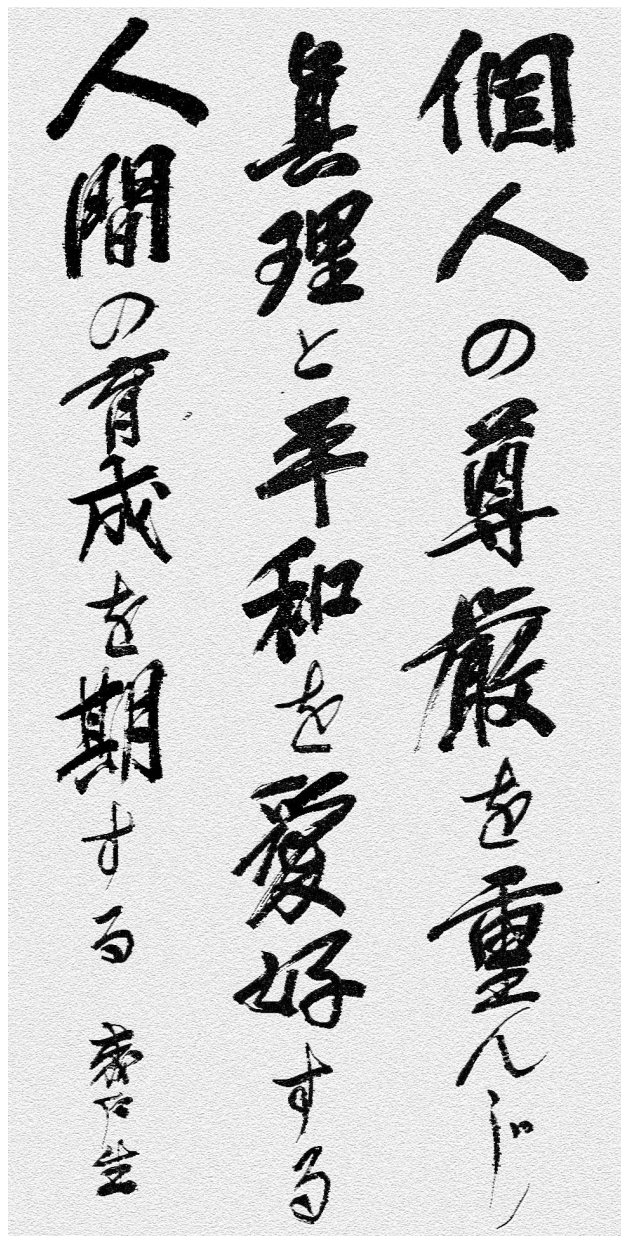 個人の尊厳を重んじ
真理と平和を愛好する
人間の育成を期する